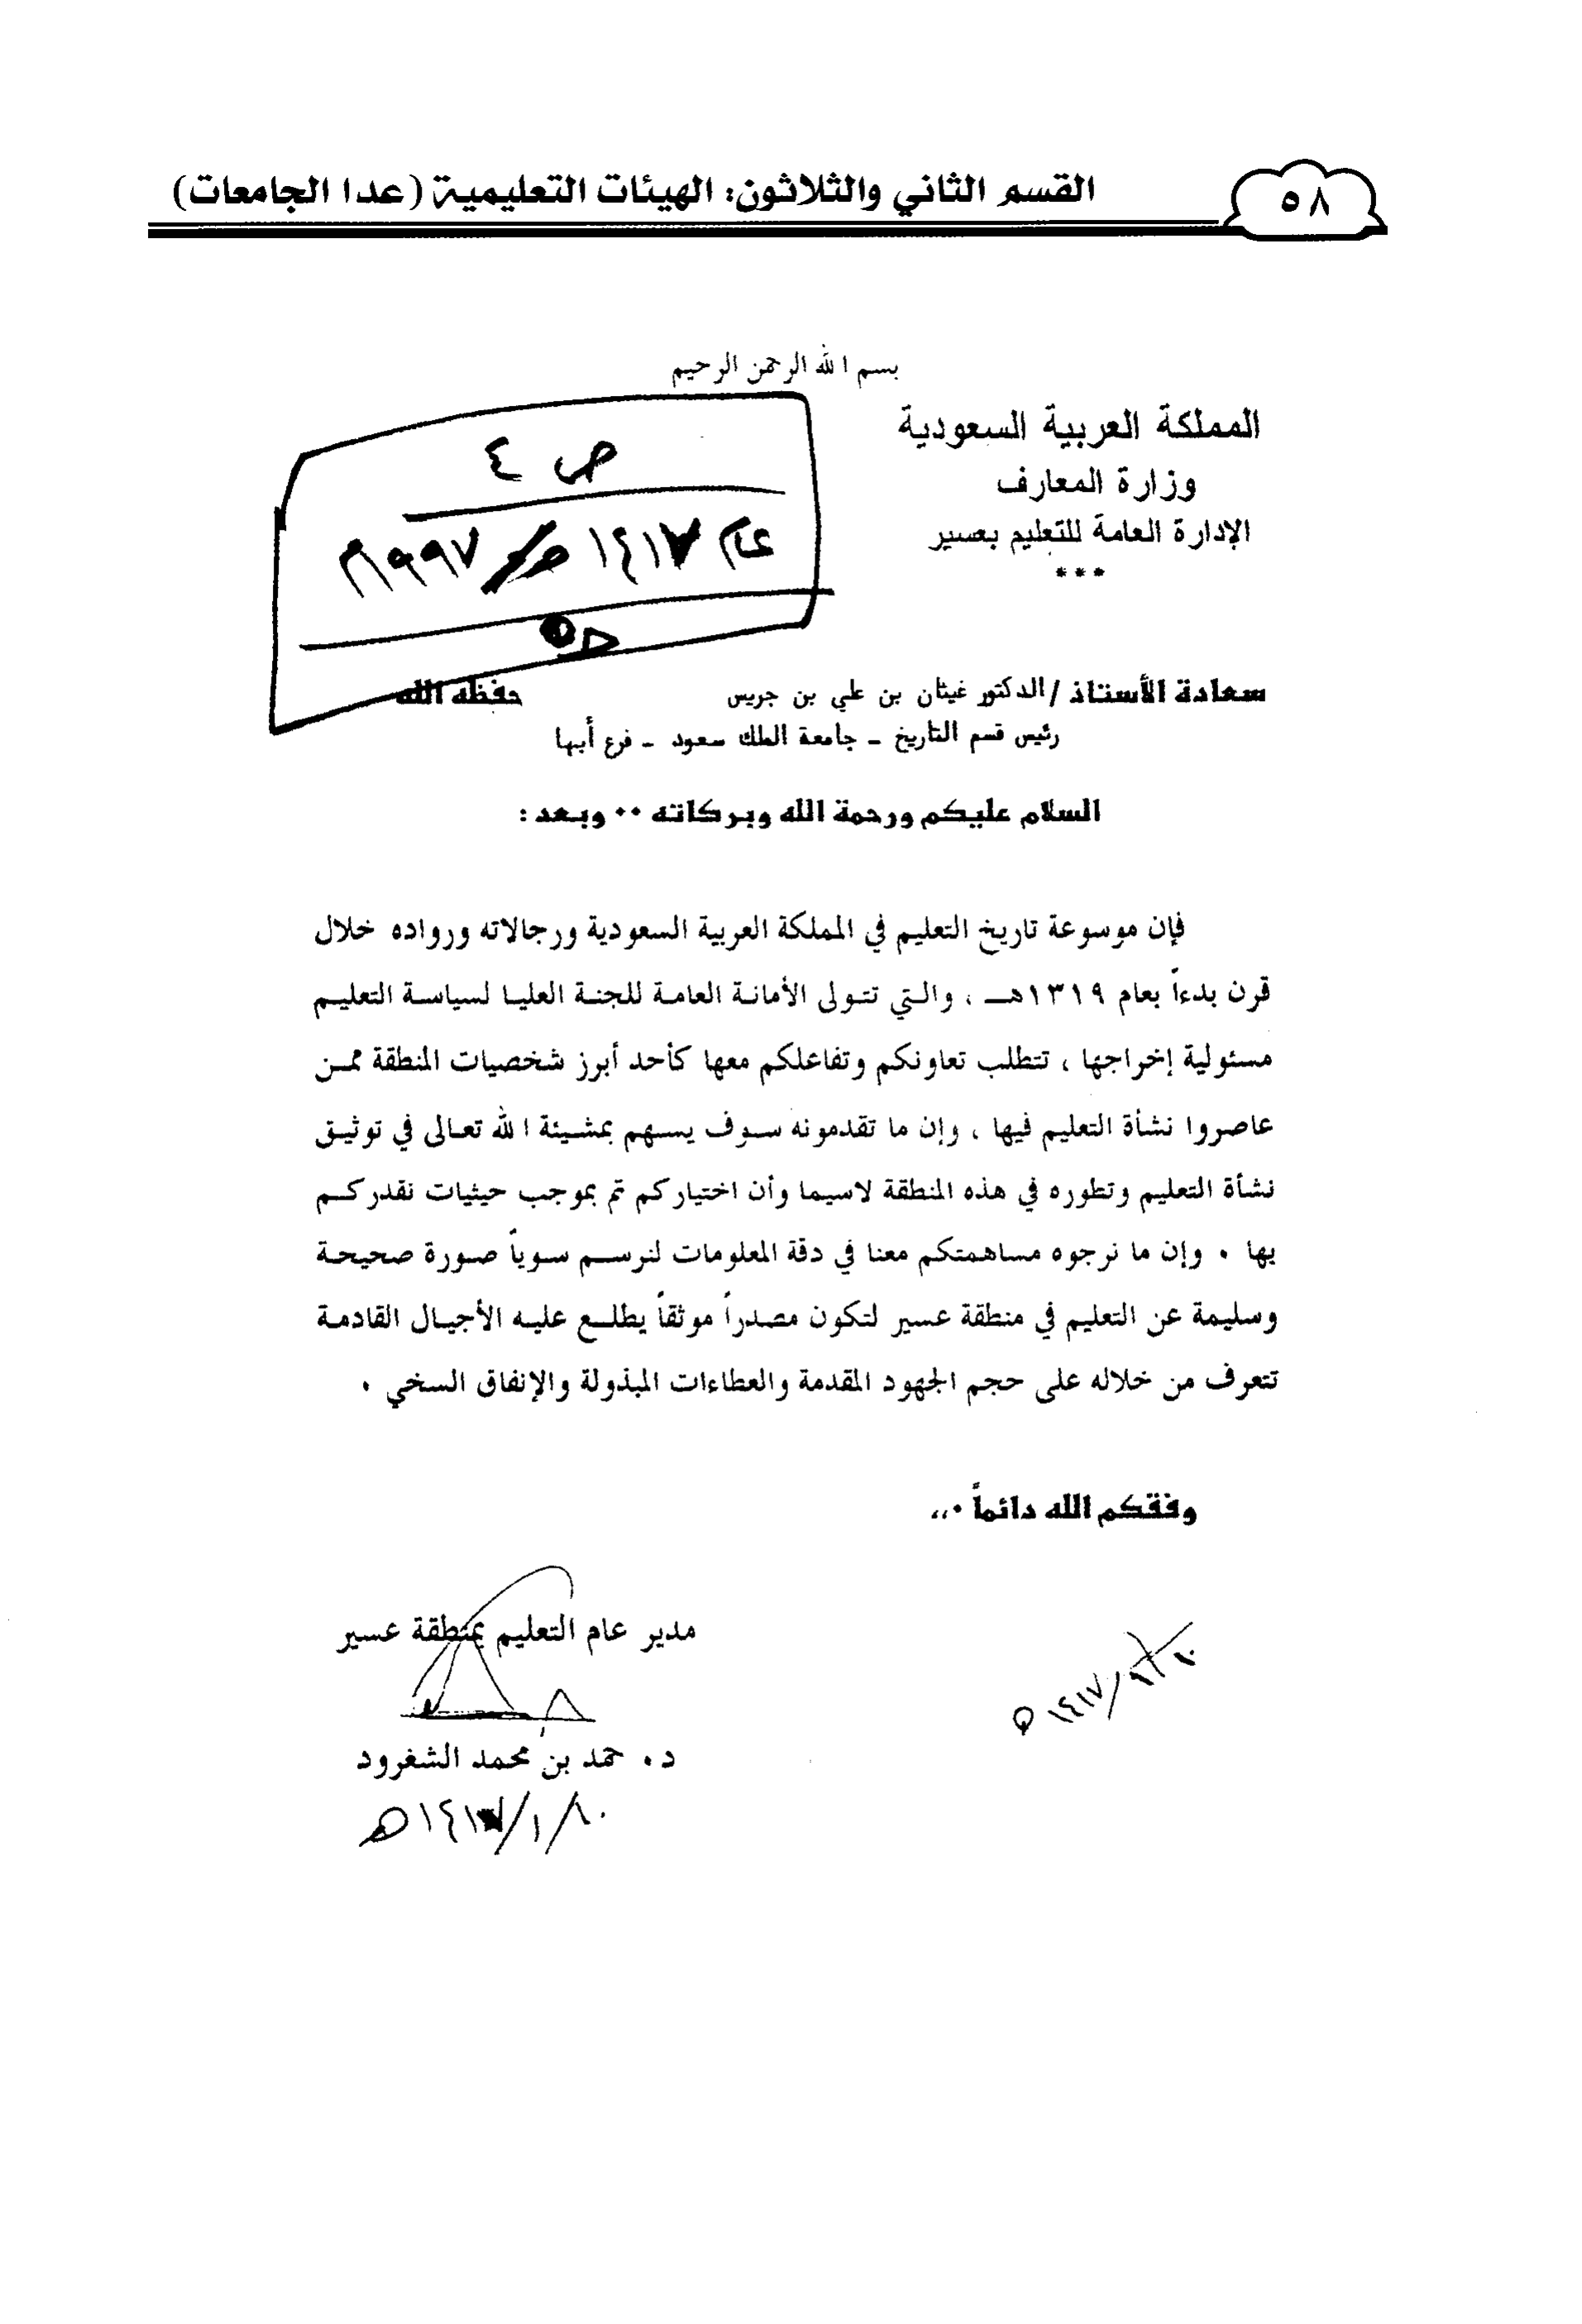 ٥٨
القسم الثاني والثلاثون: الهيئات التعليمية (عدا الجامعات)
بسم الله الرحمن الرحيم
المملكة العربية السعودية
وزارة المعارف
الإدارة العامة للتعليم بعسير
***
ص ٤
عام ١٤١٧ هـ/١٩٩٧م
سعادة الأستاذ / الدكتور غيثان بن علي بن جريس حفظه الله
رئيس قسم التاريخ - جامعة الملك سعود - فرع أبها
السلام عليكم ورحمة الله وبركاته ٠٠ وبعد :
فإن موسوعة تاريخ التعليم في المملكة العربية السعودية ورجالاته ورواده خلال
قرن بدءاً بعام ١٣١٩هـ ، والتي تتولى الأمانة العامة للجنة العليا لسياسة التعليم
مسئولية إخراجها ، تتطلب تعاونكم وتفاعلكم معها كأحد أبرز شخصيات المنطقة ممن
عاصروا نشأة التعليم فيها ، وإن ما تقدمونه سوف يسهم بمشيئة الله تعالى في توثيق
نشأة التعليم وتطوره في هذه المنطقة لاسيما وأن اختياركم تم بموجب حيثيات نقدركم
بها ٠ وإن ما نرجوه مساهمتكم معنا في دقة المعلومات لنرسم سوياً صورة صحيحة
وسليمة عن التعليم في منطقة عسير لتكون مصدراً موثقاً يطلع عليه الأجيال القادمة
تتعرف من خلاله على حجم الجهود المقدمة والعطاءات المبذولة والإنفاق السخي ٠
وفقكم الله دائماً ٠،،
مدير عام التعليم بمنطقة عسير
د. حمد بن محمد الشغرود